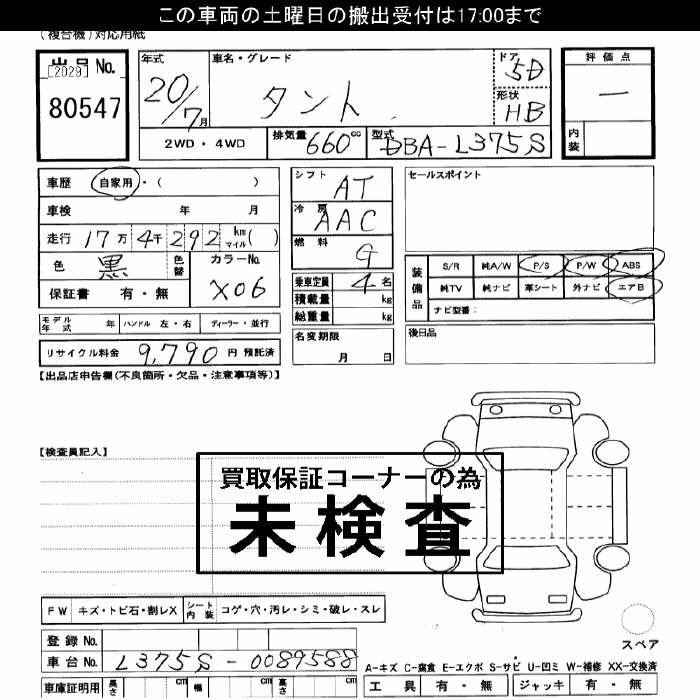 この車両の土曜日の搬出受付は17:00まで
(複合機)対応用紙
出品No.
[2029]
80547
年式
20/7月
車名・グレード
タント
ドア
5D
形状
HB
評価点
―
内装
2WD・4WD
排気量
660cc
型式
DBA-L375S
車歴 自家用・( )
車検 年 月
走行 17万 4千 292 km マイル( )
色 黒 色替 カラーNo.
X06
保証書 有・無
シフト
AT
冷房
AAC
燃料
G
乗車定員 4名
積載量 kg
総重量 kg
セールスポイント
装備品
S/R 純A/W P/S P/W ABS
純TV 純ナビ 革シート 外ナビ エアB
ナビ型番:
モデル年式 年 ハンドル 左・右 ディーラー・並行
名変期限
月 日
後日品
リサイクル料金 9,790 円 預託済
【出品店申告欄(不良箇所・欠品・注意事項等)】
【検査員記入】
買取保証コーナーの為
未検査
FW キズ・トビ石・割レX シート内装 コゲ・穴・汚レ・シミ・破レ・スレ
スペア
登録No.
車台No. L375S-0089588
車庫証明用 長さ cm 幅 cm 高さ cm
A-キズ C-腐食 E-エクボ S-サビ U-凹ミ W-補修 XX-交換済
工具 有・無 ジャッキ 有・無